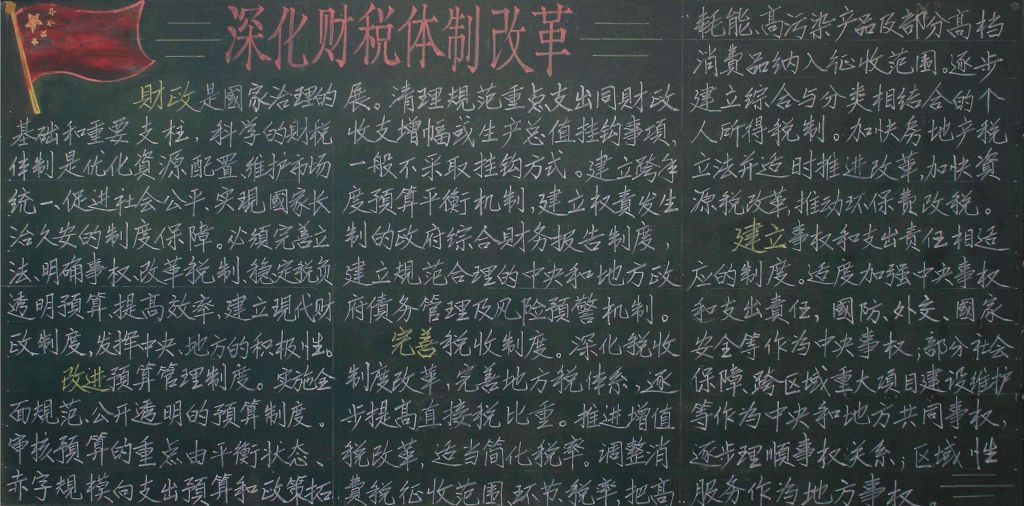 深化财税体制改革
财政是國家治理的
基础和重要支柱，科学的财税
体制是优化資源配置、维护市场
统一、促进社会公平、实现國家长
治久安的制度保障。必须完善立
法、明确事权、改革税制、稳定税负
透明預算、提高效率，建立現代财
政制度，发挥中央、地方的积极性。
改进預算管理制度。实施全
面规范、公开透明的預算制度。
审核預算的重点由平衡状态、
赤字规模向支出預算和政策拓
展。清理规范重点支出同财政
收支增幅或生产总值挂钩事項，
一般不采取挂钩方式。建立跨年
度預算平衡机制，建立权責发生
制的政府综合财务报告制度，
建立规范合理的中央和地方政
府债务管理及风险預警机制。
完善税收制度。深化税收
制度改革，完善地方税体系，逐
步提高直接税比重。推进增值
税改革，适当简化税率。调整消
費税征收范围、环节、税率，把高
耗能、高污染产品及部分高档
消費品纳入征收范围。逐步
建立综合与分类相结合的个
人所得税制。加快房地产税
立法并适时推进改革，加快資
源税改革，推动环保費改税。
建立事权和支出責任相适
应的制度。适度加强中央事权
和支出責任，國防、外交、國家
安全等作为中央事权；部分社会
保障、跨区域重大項目建设维护
等作为中央和地方共同事权，
逐步理順事权关系；区域性
服务作为地方事权。